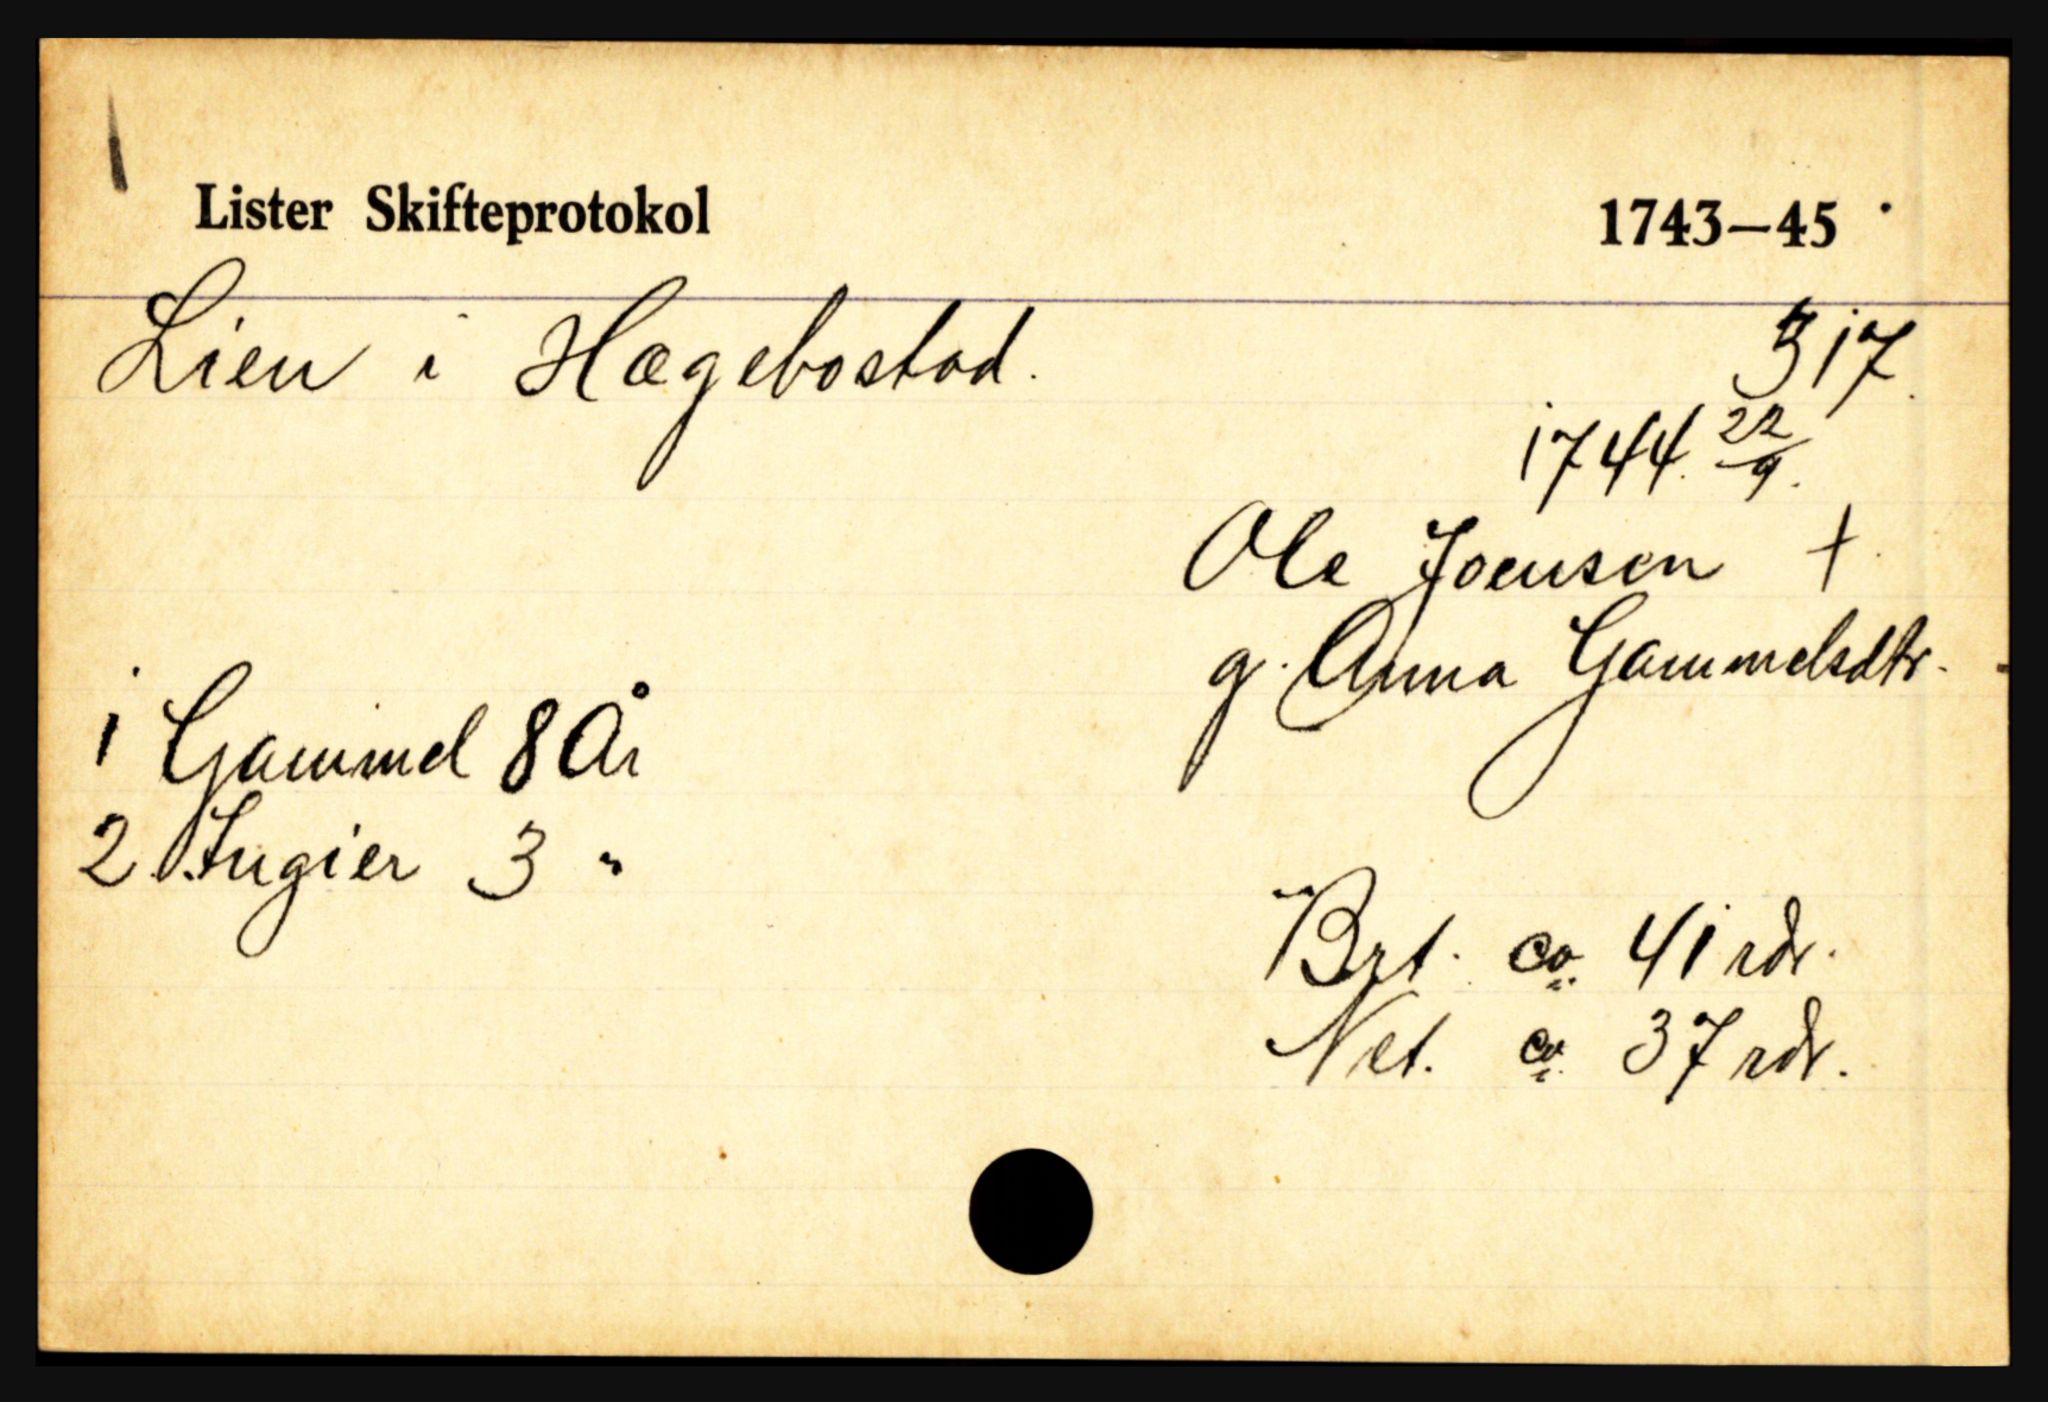 Lister Skifteprotokol 1743—45
Lien i Hægebostad. 317.
1744 22/9.
Ole Joensen †
g. Anna Gammelsdtr.
1 Gammel 8 År
2. Ingier 3 "
Brt. ca. 41 rdr.
Net. ca. 37 rdr.